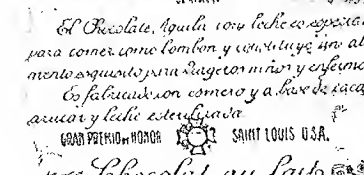 El Chocolate Aguila con leche es especial
para comer como bombon y constituye un ali
mento exquisito para mujeres niños y enfermos
Es fabricado con esmero y a base de cacao
azucar y leche esterilizada
GRAN PREMIO DE HONOR SAINT LOUIS U.S.A.
Chocolat au Lait